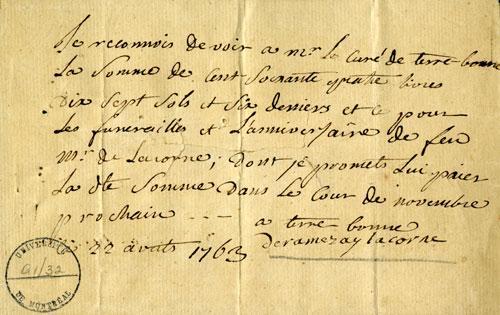 Je reconnois devoir a mr. le curé de terre bonne
La somme de cent soixante quatre livres
dix sept sols et six deniers et ce pour
les funerailles et L'anniversaire de feu
Mr. de Lacorne; dont je promets lui paier
La dte somme dans le cour de novembre
prochain - - - a terre bonne
22 avrils 1763 deramezay lacorne
UNIVERSITÉ
A1/32
DE MONTRÉAL